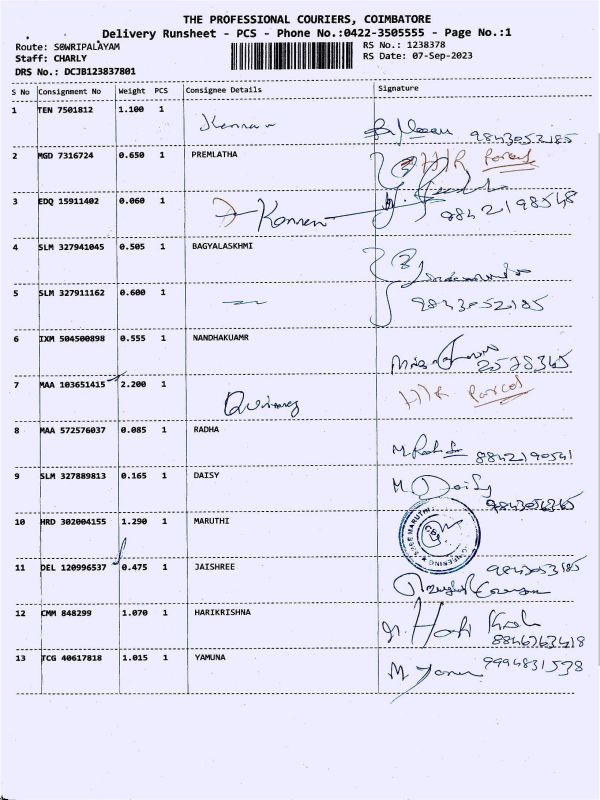 THE PROFESSIONAL COURIERS, COIMBATORE
Delivery Runsheet - PCS - Phone No.:0422-3505555 - Page No.:1
Route: SOWRIPALAYAM RS No.: 1238378
Staff: CHARLY RS Date: 07-Sep-2023
DRS No.: DCJB123837801
S No Consignment No Weight PCS Consignee Details Signature
1 TEN 7501812 1.100 1 Kannan 9843052185
2 MGD 7316724 0.650 1 PREMLATHA H/R Parcel
3 EDQ 15911402 0.060 1 Kannan 9842198548
4 SLM 327941045 0.505 1 BAGYALASKHMI
5 SLM 327911162 0.600 1 9843052185
6 IXM 504500898 0.555 1 NANDHAKUAMR 2578365
7 MAA 103651415 2.200 1 H/R Parcel
8 MAA 572576037 0.085 1 RADHA M. Radha 8842190541
9 SLM 327889813 0.165 1 DAISY M. Daisy
10 HRD 302004155 1.290 1 MARUTHI
11 DEL 120996537 0.475 1 JAISHREE
12 CMM 848299 1.070 1 HARIKRISHNA 8846763418
13 TCG 40617818 1.015 1 YAMUNA M 9994831538